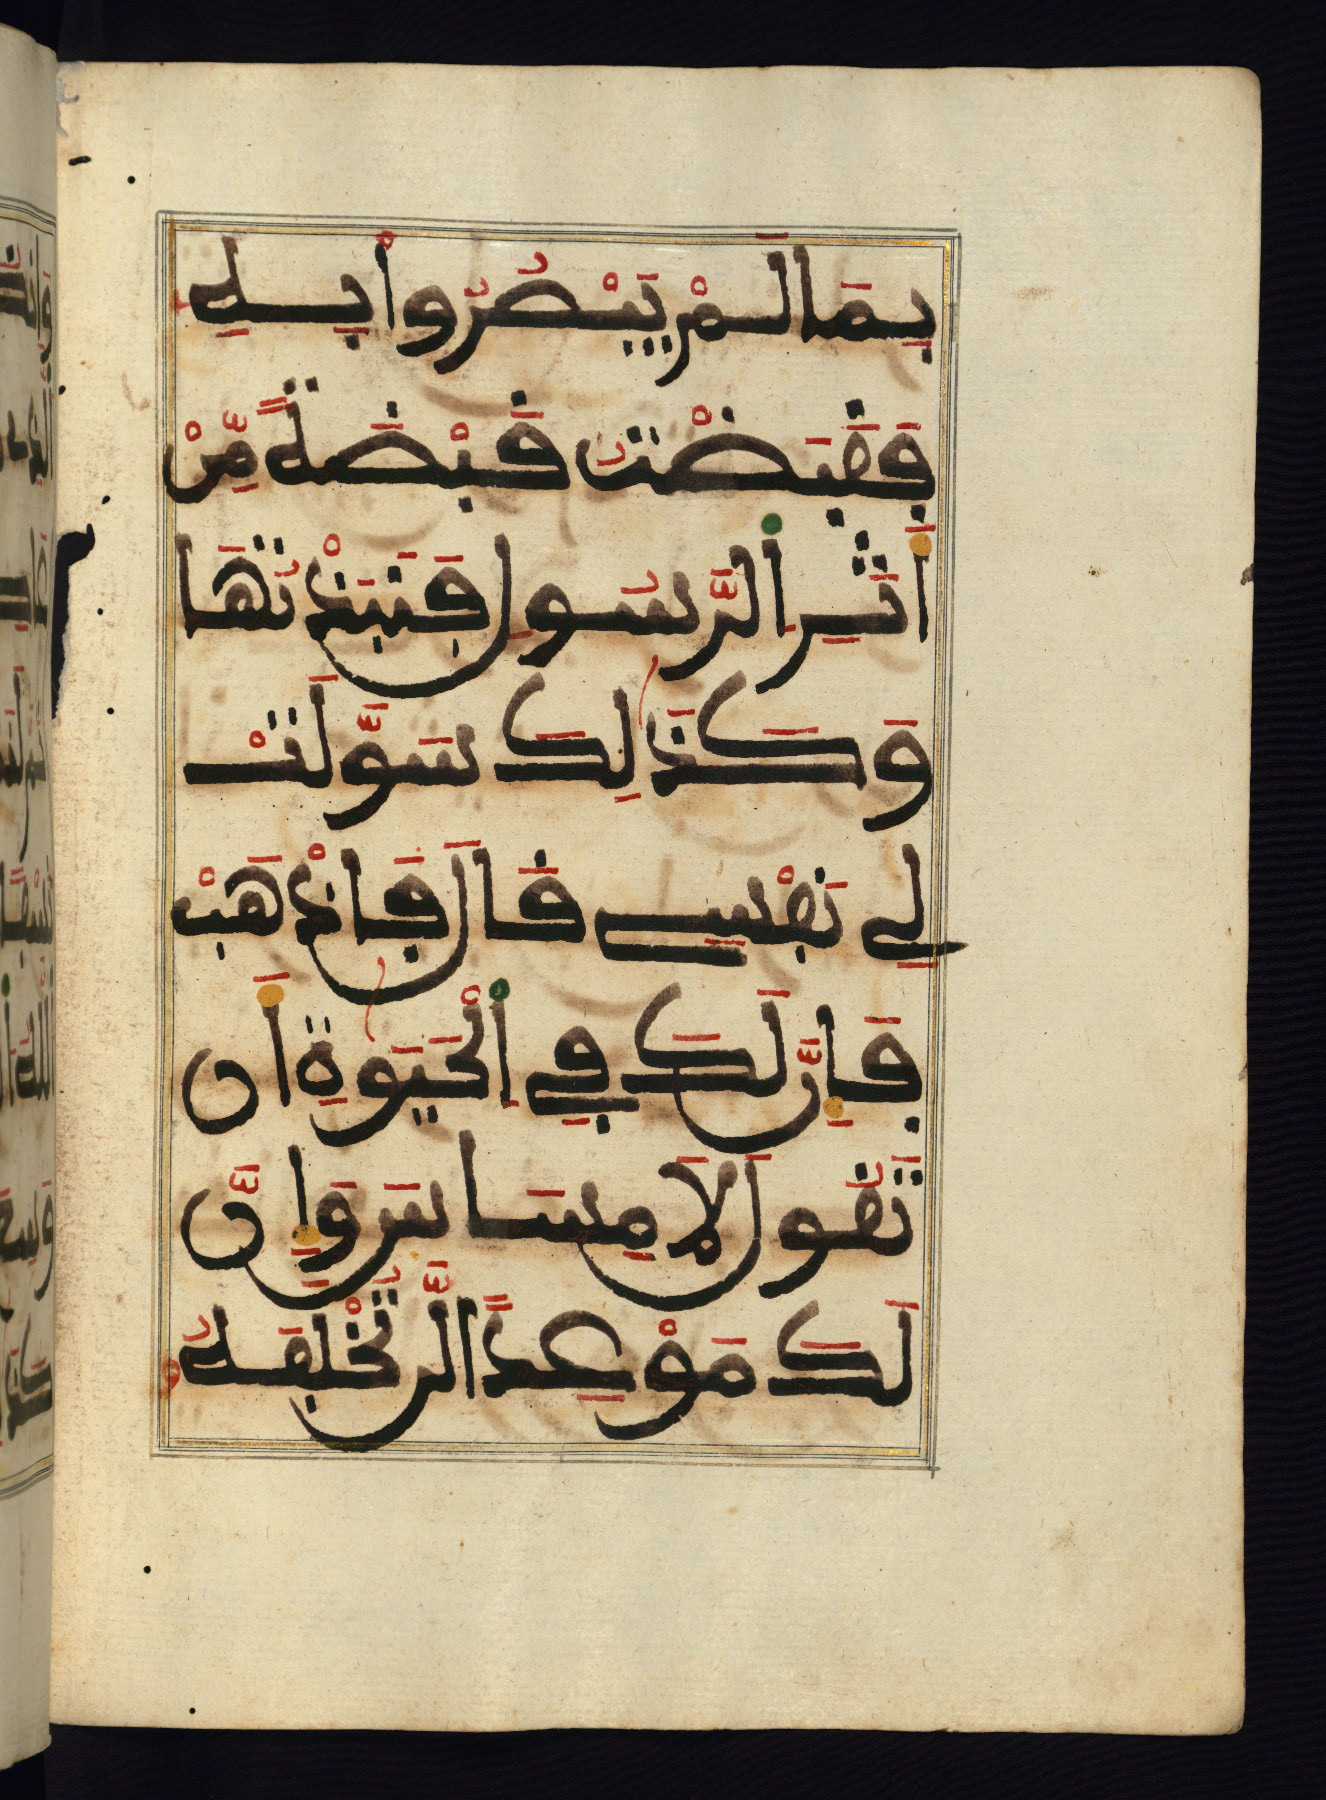 بِمَا لَمْ يَبْصُرُواْ بِهِ
فَقَبَضْتُ قَبْضَةً مِّنْ
أَثَرِ اَ۬لرَّسُولِ فَنَبَذْتُهَا
وَكَذَٰلِكَ سَوَّلَتْ
لِے نَفْسِے قَالَ فَاذْهَبْ
فَإِنَّ لَكَ فِے اِ۬لْحَيَوٰةِ أَن
تَقُولَ لَا مِسَاسَ وَإِنَّ
لَكَ مَوْعِداً لَّن تُخْلَفَهُۥ